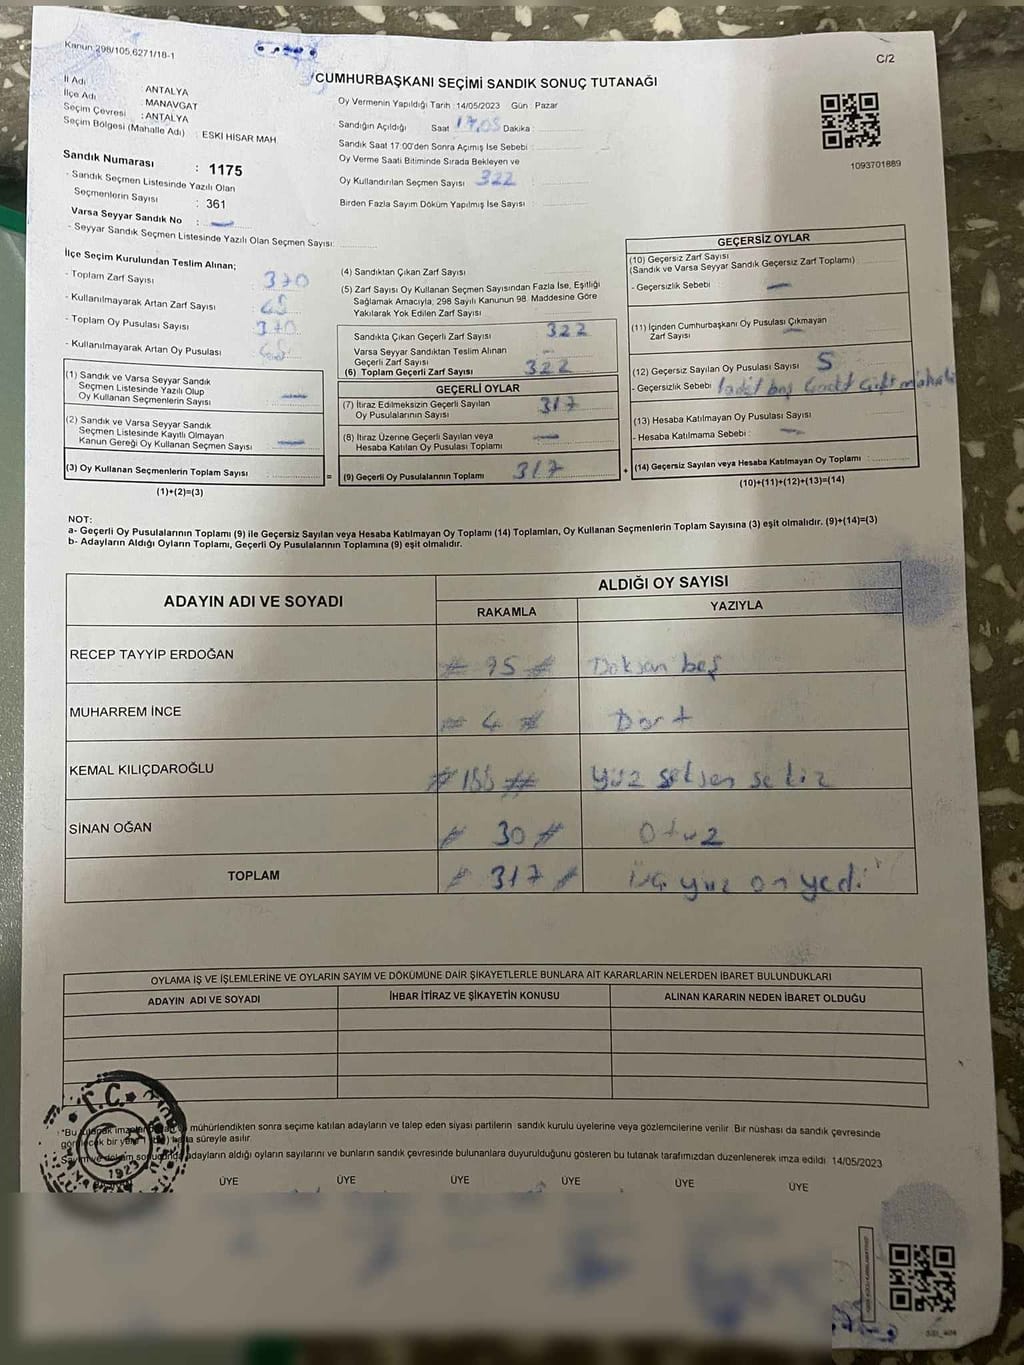 Kanun:298/105,6271/18-1
C/2
CUMHURBAŞKANI SEÇİMİ SANDIK SONUÇ TUTANAĞI
İl Adı : ANTALYA
İlçe Adı : MANAVGAT
Seçim Çevresi : ANTALYA
Seçim Bölgesi (Mahalle Adı) : ESKİ HİSAR MAH
Sandık Numarası : 1175
- Sandık Seçmen Listesinde Yazılı Olan
Seçmenlerin Sayısı : 361
Varsa Seyyar Sandık No :
- Seyyar Sandık Seçmen Listesinde Yazılı Olan Seçmen Sayısı:
Oy Vermenin Yapıldığı Tarih :14/05/2023 Gün : Pazar
Sandığın Açıldığı Saat 17.05 Dakika :
Sandık Saat 17:00'den Sonra Açımış İse Sebebi :
Oy Verme Saati Bitiminde Sırada Bekleyen ve
Oy Kullandırılan Seçmen Sayısı 322
Birden Fazla Sayım Döküm Yapılmış İse Sayısı :
1093701889
İlçe Seçim Kurulundan Teslim Alınan;
- Toplam Zarf Sayısı : 370
- Kullanılmayarak Artan Zarf Sayısı : 48
- Toplam Oy Pusulası Sayısı : 370
- Kullanılmayarak Artan Oy Pusulası : 48
(1) Sandık ve Varsa Seyyar Sandık
Seçmen Listesinde Yazılı Olup
Oy Kullanan Seçmenlerin Sayısı :
(2) Sandık ve Varsa Seyyar Sandık
Seçmen Listesinde Kayıtlı Olmayan
Kanun Gereği Oy Kullanan Seçmen Sayısı :
(3) Oy Kullanan Seçmenlerin Toplam Sayısı : =
(1)+(2)=(3)
(4) Sandıktan Çıkan Zarf Sayısı
(5) Zarf Sayısı Oy Kullanan Seçmen Sayısından Fazla İse, Eşitliği
Sağlamak Amacıyla, 298 Sayılı Kanunun 98. Maddesine Göre
Yakılarak Yok Edilen Zarf Sayısı
Sandıkta Çıkan Geçerli Zarf Sayısı 322
Varsa Seyyar Sandıktan Teslim Alınan
Geçerli Zarf Sayısı
(6) Toplam Geçerli Zarf Sayısı 322
GEÇERLİ OYLAR
(7) İtiraz Edilmeksizin Geçerli Sayılan
Oy Pusulalarının Sayısı 317
(8) İtiraz Üzerine Geçerli Sayılan veya
Hesaba Katılan Oy Pusulası Toplamı
(9) Geçerli Oy Pusulalarının Toplamı 317 +
GEÇERSİZ OYLAR
(10) Geçersiz Zarf Sayısı
(Sandık ve Varsa Seyyar Sandık Geçersiz Zarf Toplamı)
- Geçersizlik Sebebi :
(11) İçinden Cumhurbaşkanı Oy Pusulası Çıkmayan
Zarf Sayısı
(12) Geçersiz Sayılan Oy Pusulası Sayısı 5
- Geçersizlik Sebebi : 1 adet boş 4 adet çift mühür
(13) Hesaba Katılmayan Oy Pusulası Sayısı
- Hesaba Katılmama Sebebi :
(14) Geçersiz Sayılan veya Hesaba Katılmayan Oy Toplamı :
(10)+(11)+(12)+(13)=(14)
NOT:
a- Geçerli Oy Pusulalarının Toplamı (9) ile Geçersiz Sayılan veya Hesaba Katılmayan Oy Toplamı (14) Toplamları, Oy Kullanan Seçmenlerin Toplam Sayısına (3) eşit olmalıdır. (9)+(14)=(3)
b- Adayların Aldığı Oyların Toplamı, Geçerli Oy Pusulalarının Toplamına (9) eşit olmalıdır.
ADAYIN ADI VE SOYADI
ALDIĞI OY SAYISI
RAKAMLA YAZIYLA
RECEP TAYYİP ERDOĞAN # 95 # Doksan beş
MUHARREM İNCE # 4 # Dört
KEMAL KILIÇDAROĞLU # 188 # yüz seksen sekiz
SİNAN OĞAN # 30 # Otuz
TOPLAM # 317 # üç yüz on yedi
OYLAMA İŞ VE İŞLEMLERİNE VE OYLARIN SAYIM VE DÖKÜMÜNE DAİR ŞİKAYETLERLE BUNLARA AİT KARARLARIN NELERDEN İBARET BULUNDUKLARI
ADAYIN ADI VE SOYADI İHBAR İTİRAZ VE ŞİKAYETİN KONUSU ALINAN KARARIN NEDEN İBARET OLDUĞU
T.C.
1923
"Bu mühürlendikten sonra seçime katılan adayların ve talep eden siyasi partilerin sandık kurulu üyelerine veya gözlemcilerine verilir. Bir nüshası da sandık çevresinde
bir yere süreyle asılır.
adayların aldığı oyların sayılarını ve bunların sandık çevresinde bulunanlara duyurulduğunu gösteren bu tutanak tarafımızdan düzenlenerek imza edildi. 14/05/2023
ÜYE ÜYE ÜYE ÜYE ÜYE ÜYE